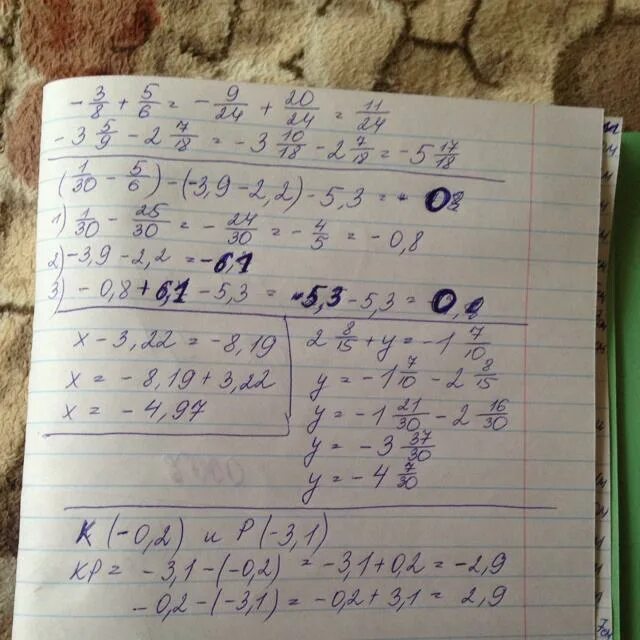 - 3/8 + 5/6 = - 9/24 + 20/24 = 11/24
- 3 5/9 - 2 7/18 = - 3 10/18 - 2 7/18 = - 5 17/18
(1/30 - 5/6) - (-3,9 - 2,2) - 5,3 = 0
1) 1/30 - 25/30 = - 24/30 = - 4/5 = - 0,8
2) -3,9 - 2,2 = -6,1
3) - 0,8 + 6,1 - 5,3 = -5,3 - 5,3 = 0
x - 3,22 = - 8,19
x = - 8,19 + 3,22
x = - 4,97
2 8/15 + y = - 1 7/10
y = - 1 7/10 - 2 8/15
y = - 1 21/30 - 2 16/30
y = - 3 37/30
y = - 4 7/30
K (-0,2) и P (-3,1)
KP = - 3,1 - (-0,2) = -3,1 + 0,2 = -2,9
-0,2 - (-3,1) = -0,2 + 3,1 = 2,9